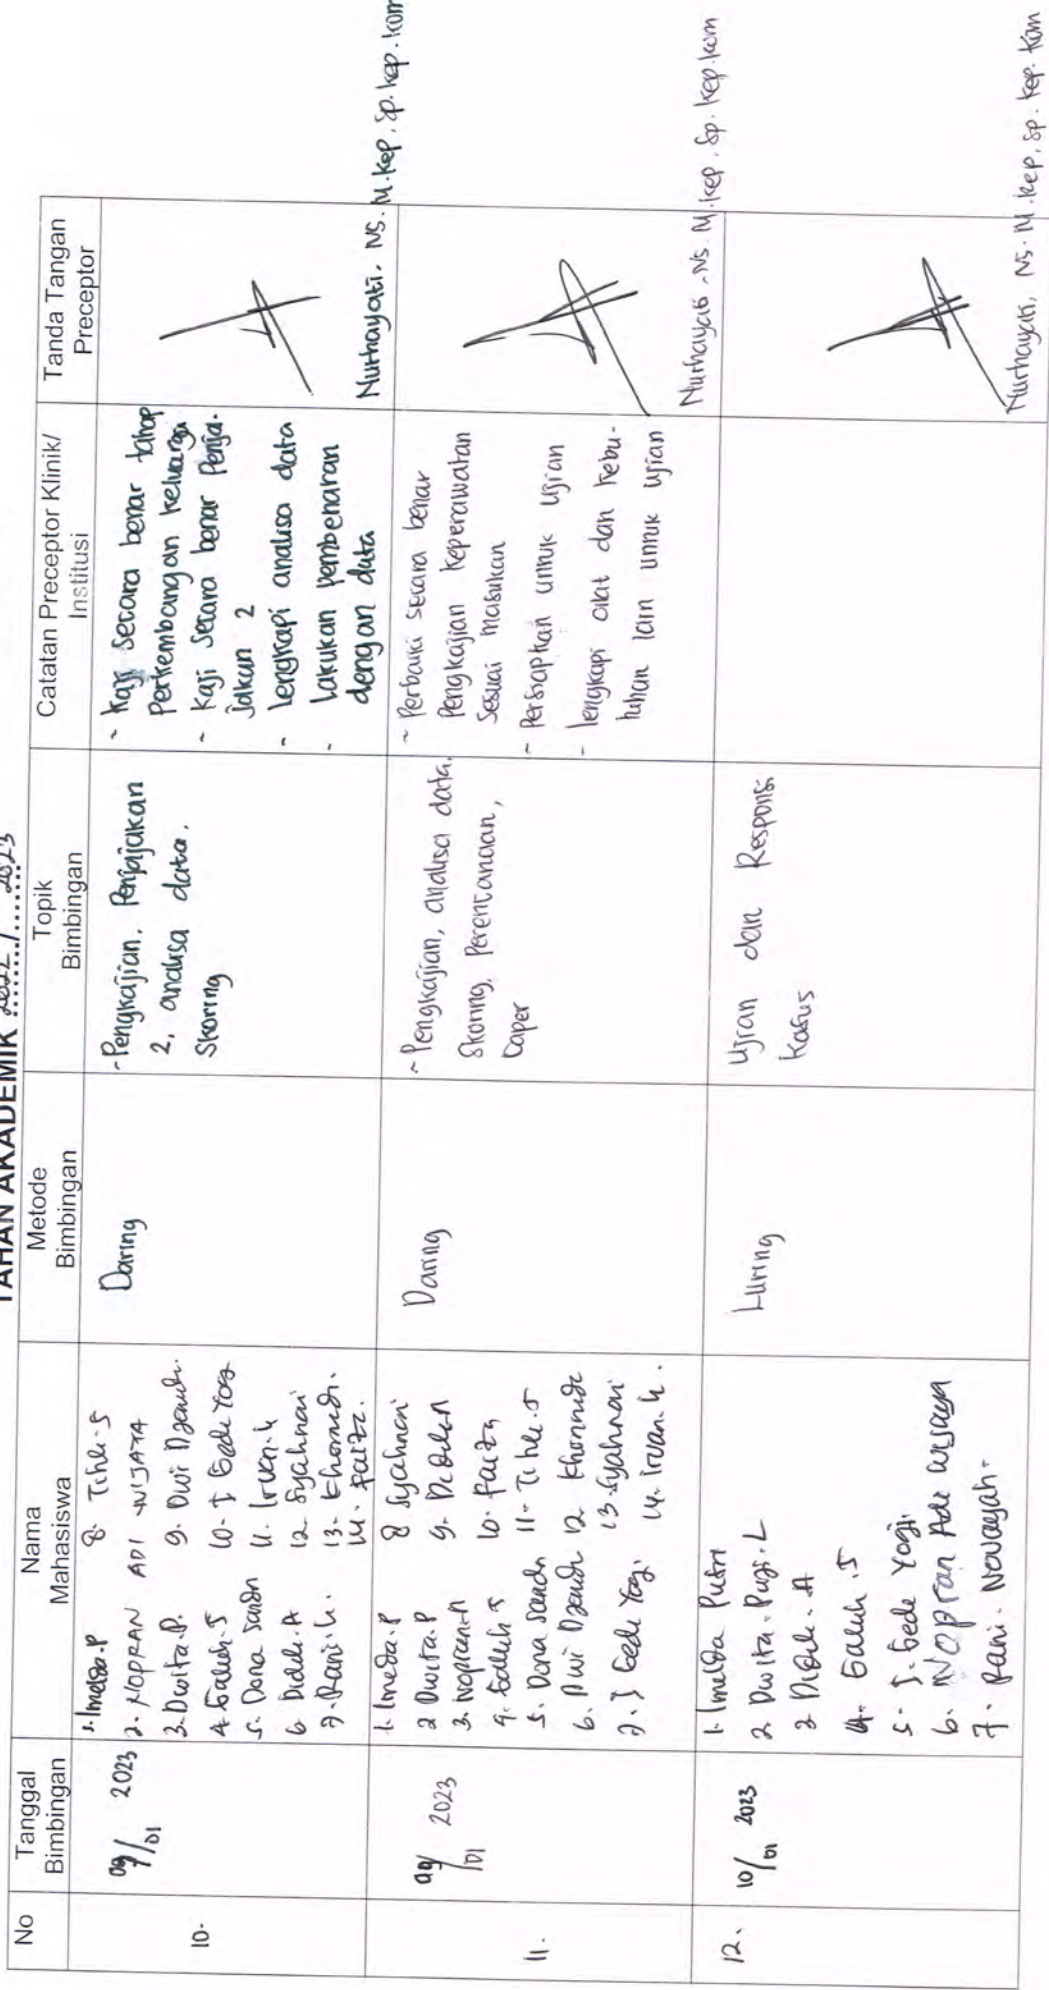 TAHAN AKADEMIK 2022/2023
No
Tanggal
Bimbingan
Nama
Mahasiswa
Metode
Bimbingan
Topik
Bimbingan
Catatan Preceptor Klinik/
Institusi
Tanda Tangan
Preceptor
10.
09/01 2023
1. Imelda.P
2. NOPRAN ADI WIJATA
3. Dwita.P.
4. Galuh.S
5. Dona Sandn
6. Didik.A
7. Rani.h.
8. Tihli.S
9. Dwi Dzandi.
10. I Gede Yogi
11. Irvan.h
12 Syahnai
13. Khomedi.
14. Faizz.
Daring
-Pengkajian, Penjajakan
2, analisa data,
Skoring
~ Kaji secara benar tahap
Perkembangan keluarga
~ Kaji secara benar Penja-
jakan 2
~ Lengkapi analisa data
- Lakukan pembenaran
dengan data
Nurhayati, NS. M.Kep, Sp.Kep.Kom
11.
09/01 2023
1. Imelda.P
2 Dwita.P
3. Nopran.A
4. Galuh S
5. Dona Sandn
6. Dwi Dzandi
7. I Gede Yogi
8 Syahnai
9. Didik.A
10. Faizz
11. Tihli.S
12 Khomedi
13. Syahnai
14. Irvan.h.
Daring
~ Pengkajian, analisa data,
Skoring, Perencanaan,
Caper
~ Perbaiki secara benar
Pengkajian Keperawatan
Sesuai masukan
~ Persiapkan untuk Ujian
- Lengkapi alat dan kebu-
tuhan lain untuk ujian
Nurhayati, NS. M.Kep, Sp.Kep.Kom
12.
10/01 2023
1. Imelda Putri
2. Dwita.Puji.L
3 Didik.A
4. Galuh.S
5. I.Gede Yogi.
6. Nopran Adi Wijaya
7. Rani. Novaeyah-
Luring
Ujian dan Responsi
Kasus
Nurhayati, NS. M.Kep, Sp.Kep.Kom